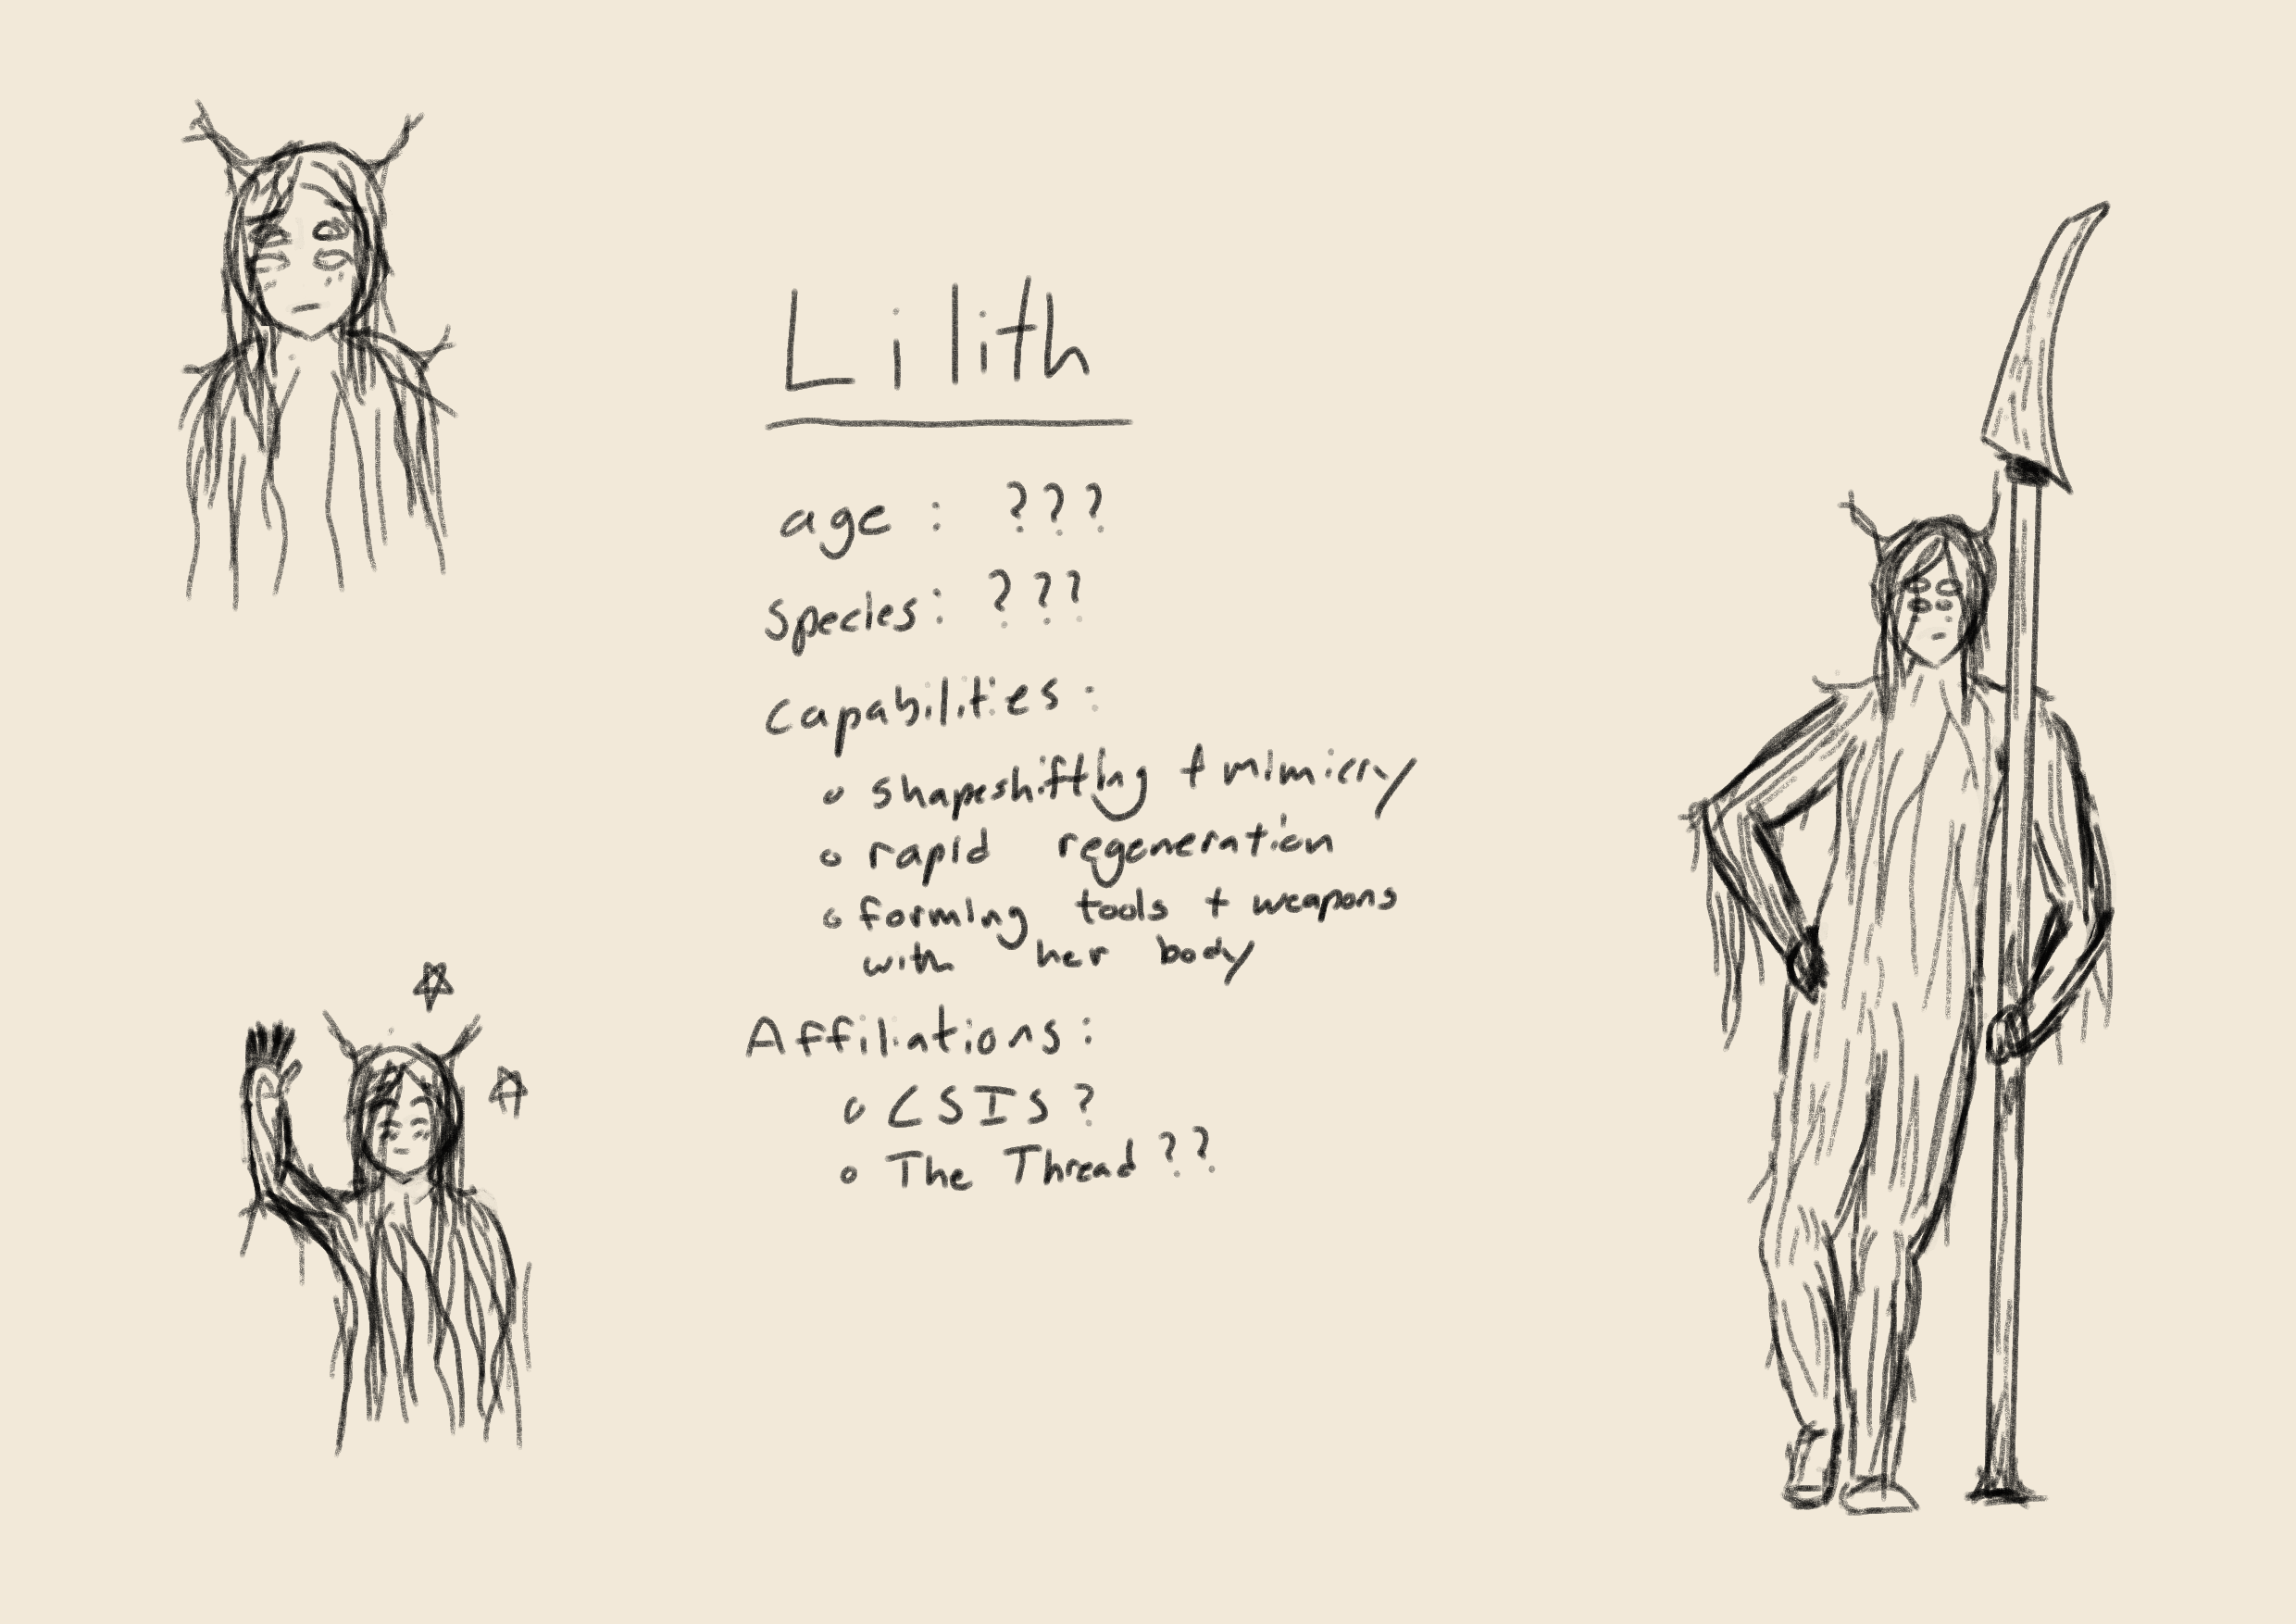 Lilith
age : ???
Species: ???
Capabilities :
o shapeshifting + mimicry
o rapid regeneration
o forming tools + weapons
with her body
Affiliations :
o CSIS ?
o The Thread ??